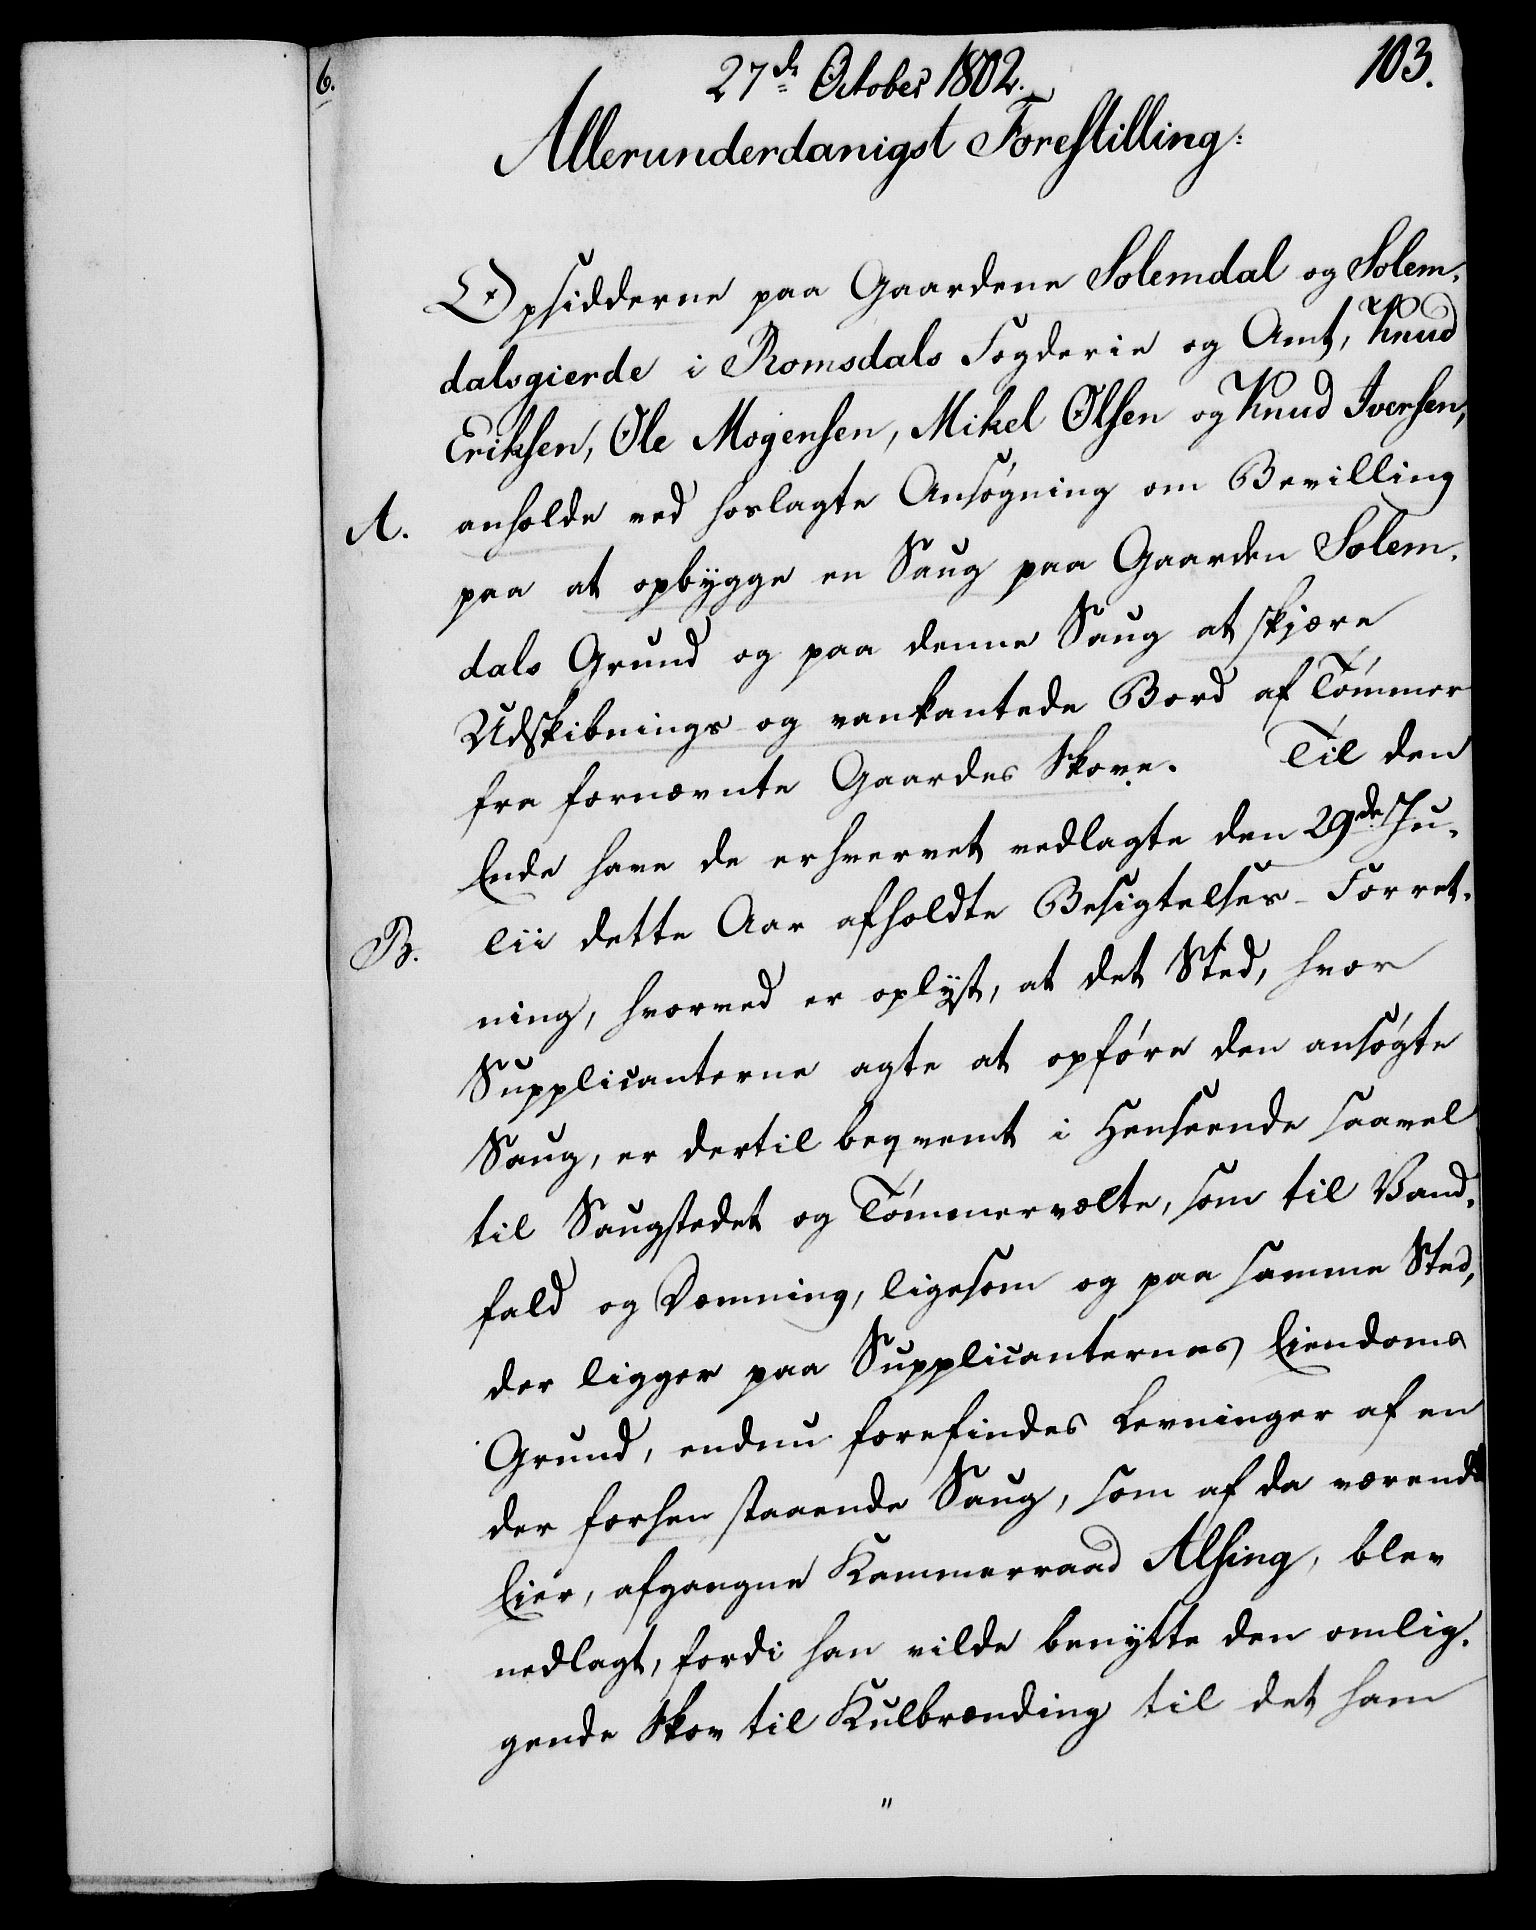 6.
27de October 1802.
103.
Allerunderdanigst Forestilling:
Opsidderne paa Gaardene Solemdal og Solem-
dalsgierde i Romsdals Fogderie og Amt, Knud
Eriksen, Ole Mogensen, Mikel Olsen og Knud Iversen,
A. anholde ved hoslagte Ansøgning om Bevilling
paa at opbygge en Saug paa Gaarden Solem-
dals Grund og paa denne Saug at skjære
Udskibnings og vankantede Bord af Tømmer
fra fornævnte Gaardes Skove. Til den
Ende have de erhvervet vedlagte den 29de Ju-
B. lii dette Aar afholdte Besigtelses-Forret-
ning, hvorved er oplyst, at det Sted, hvor
Supplicanterne agte at opføre den ansøgte
Saug, er dertil beqvemt i Henseende saavel
til Saugstedet og Tømmervælte, som til Vand-
fald og Dæmning, ligesom og paa samme Sted,
der ligger paa Supplicanternes Eiendoms
Grund, endnu forefindes Levninger af en
der forhen staaende Saug, som af da værende
Eier, afgangne Kammerraad Alsing, blev
nedlagt, fordi han vilde benytte den omlig-
gende Skov til Kulbrænding til det ham
"